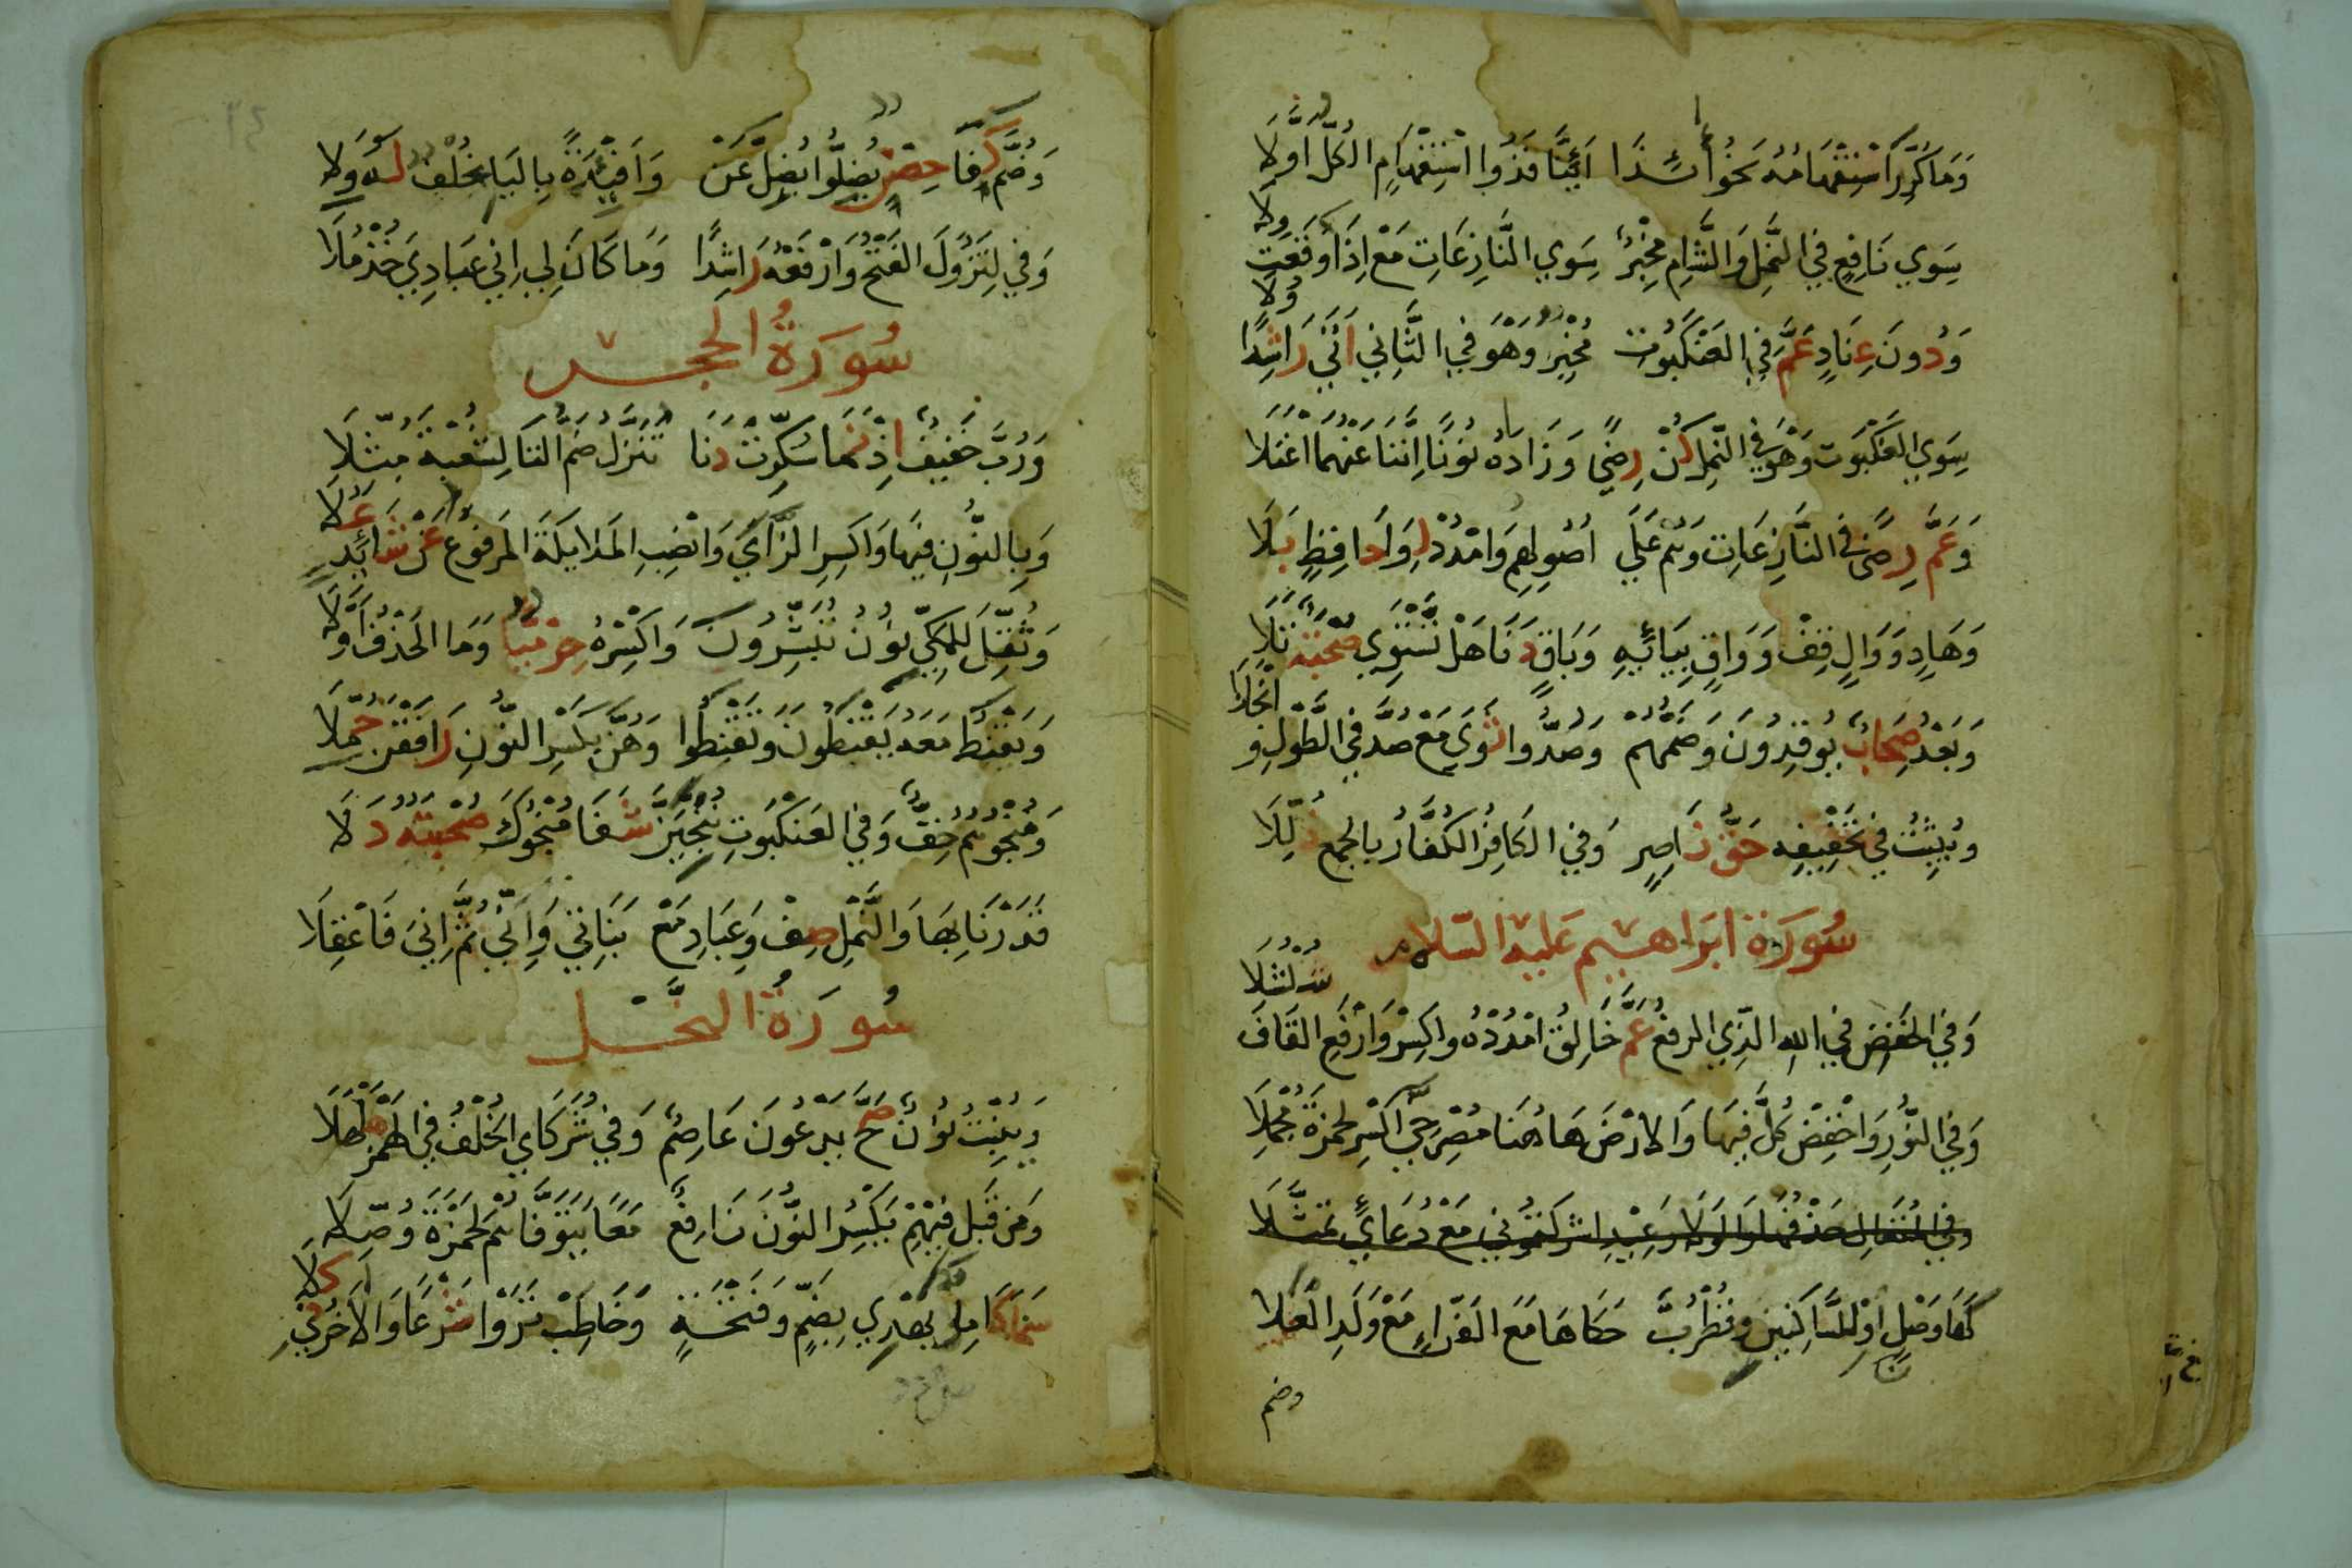 وَمَا كُرِّرَ اسْتِفْهَامُهُ نَحْوُ أَئِذَا أَئِنَّا فَذُوا اسْتِفْهَامٍ الكُلُّ أَوَّلَا
سِوَي نَافِعٍ فِي النَّمْلِ وَالشَّامِ مُخْبِرٌ سِوَي النَّازِعَاتِ مَعْ إِذَا وَقَعَتْ وِلَا
وَدُونَ عِنَادٍ عَمَّ فِي العَنْكَبُوتِ مُخْبِرٌ وَهُوَ فِي الثَّانِي أَتَي رَاشِدًا وَلَا
سِوَي العَنْكَبُوتِ وَهْوَ فِي النَّمْلِ كُنْ رِضًي وَزَادَهُ نُونًا إِنَّنَا عَنْهُمَا اعْتَلَا
وَعَمَّ رِضًى فِي النَّازِعَاتِ وَهُمْ عَلَي أُصُولِهِمِ وَامْدُدْ لِوَا حَافِظٍ بَلَا
وَهَادٍ وَوَالٍ قِفْ وَوَاقٍ بِيَائِهِ وَبَاقٍ دَنَا هَلْ تَسْتَوِي صُحْبَةٌ تَلَا
وَبَعْدُ صِحَابٌ يُوقِدُونَ وَضَمُّهُمْ وَصُدُّوا ثَوَي مَعْ صُدَّ فِي الطَّوْلِ وَانْجَلَا
وَيُثْبِتُ فِي تَخْفِيفِهِ حَقُّ نَاصِرٍ وَفِي الكَافِرُ الكُفَّارُ بِالجَمْعِ ذُلِّلَا
سُورَة ابَرَاهِيم عَليْه السّلام
وَفِي الخَفْضِ فِي اللهِ الَّذِي الرفعُ عَمَّ خَالِقُ امْدُدْهُ وَاكْسِرْ وَارْفَعِ القَافَ شُلْشُلَا
وَفِي النُّورِ وَاخْفِضْ كُلَّ فِيهَا وَالارْضَ هَاهُنَا مُصْرِخِيَّ اكْسِرْ لِحَمْزَةَ مُجْمِلَا
كَهَا وَصْلٍ اوْ لِلسَّاكِنَيْنِ وَقُطْرُبٌ حَكَاهَا مَعَ الفَرَّاءِ مَعْ وَلَدِ العُلَا
وضم
وَضُمَّ كِفَا حِصْنٍ يُضِلُّوا يُضِلَّ عَنْ وَأَفْئِيدَةً بِاليَا بِخُلْفٍ لَهُ وَلَا
وَفِي لِتَزُولَ الفَتْحُ وَارْفَعْهُ رَاشِدًا وَمَا كَانَ لِي إِنِّي عِبَادِيَ خُذْ مُلَا
سُورَةُ الحجر
وَرُبَّ خَفِيفٌ إِذْ نَمَا سُكِّرَتْ دَنَا تُنَزَّلُ ضَمُّ التَّا لِشُعْبَةَ مُثِّلَا
وَبِالنُّونِ فِيهَا وَاكْسِرِ الزَّايَ وَانْصِبِ المَلَائِكَةَ المَرْفُوعَ عَنْ شَائِدٍ عُلَا
وَثُقِّلَ لِلمَكِّيِّ نُونُ تُبَشِّرُونَ وَاكْسِرْهُ حِرْمِيًّا وَمَا الحَذْفُ أَوَّلَا
وَيَقْنَطُ مَعْهُ يَقْنَطُونَ وَتَقْنَطُوا وَهُنَّ بِكَسْرِ النُّونِ رَافَقْنَ حُمَّلَا
وَمُنْجُوهُمُ خِفٌّ وَفِي العَنْكَبُوتِ نُنْجِيَنَّ شَفَا مُنْجُوكَ صُحْبَتُهُ دَلَا
قَدَرْنَا بِهَا وَالنَّمْلِ صِفْ وَعِبَادِ مَعْ بَنَاتِي وَأَنِّي ثُمَّ إِنِّيَ فَاعْقِلَا
سُورَةُ النحْل
وَيُنْبِتُ نُونٌ صَحَّ يَدْعُونَ عَاصِمٌ وَفِي شُرَكَايَ الخُلْفُ فِي الهَمْزِ هَلْهَلَا
وَمِنْ قَبْلِ فِيهِمْ يَكْسِرُ النُّونَ نَافِعٌ مَعًا يَتَوَفَّاهُمْ لِحَمْزَةَ وُصِّلَا
سَمَا كَامِلٌ يَهْدِي بِضَمٍّ وَفَتْحَةٍ وَخَاطِبْ تَرَوْا شَرْعًا وَالآخِرُ فِي كِلَا